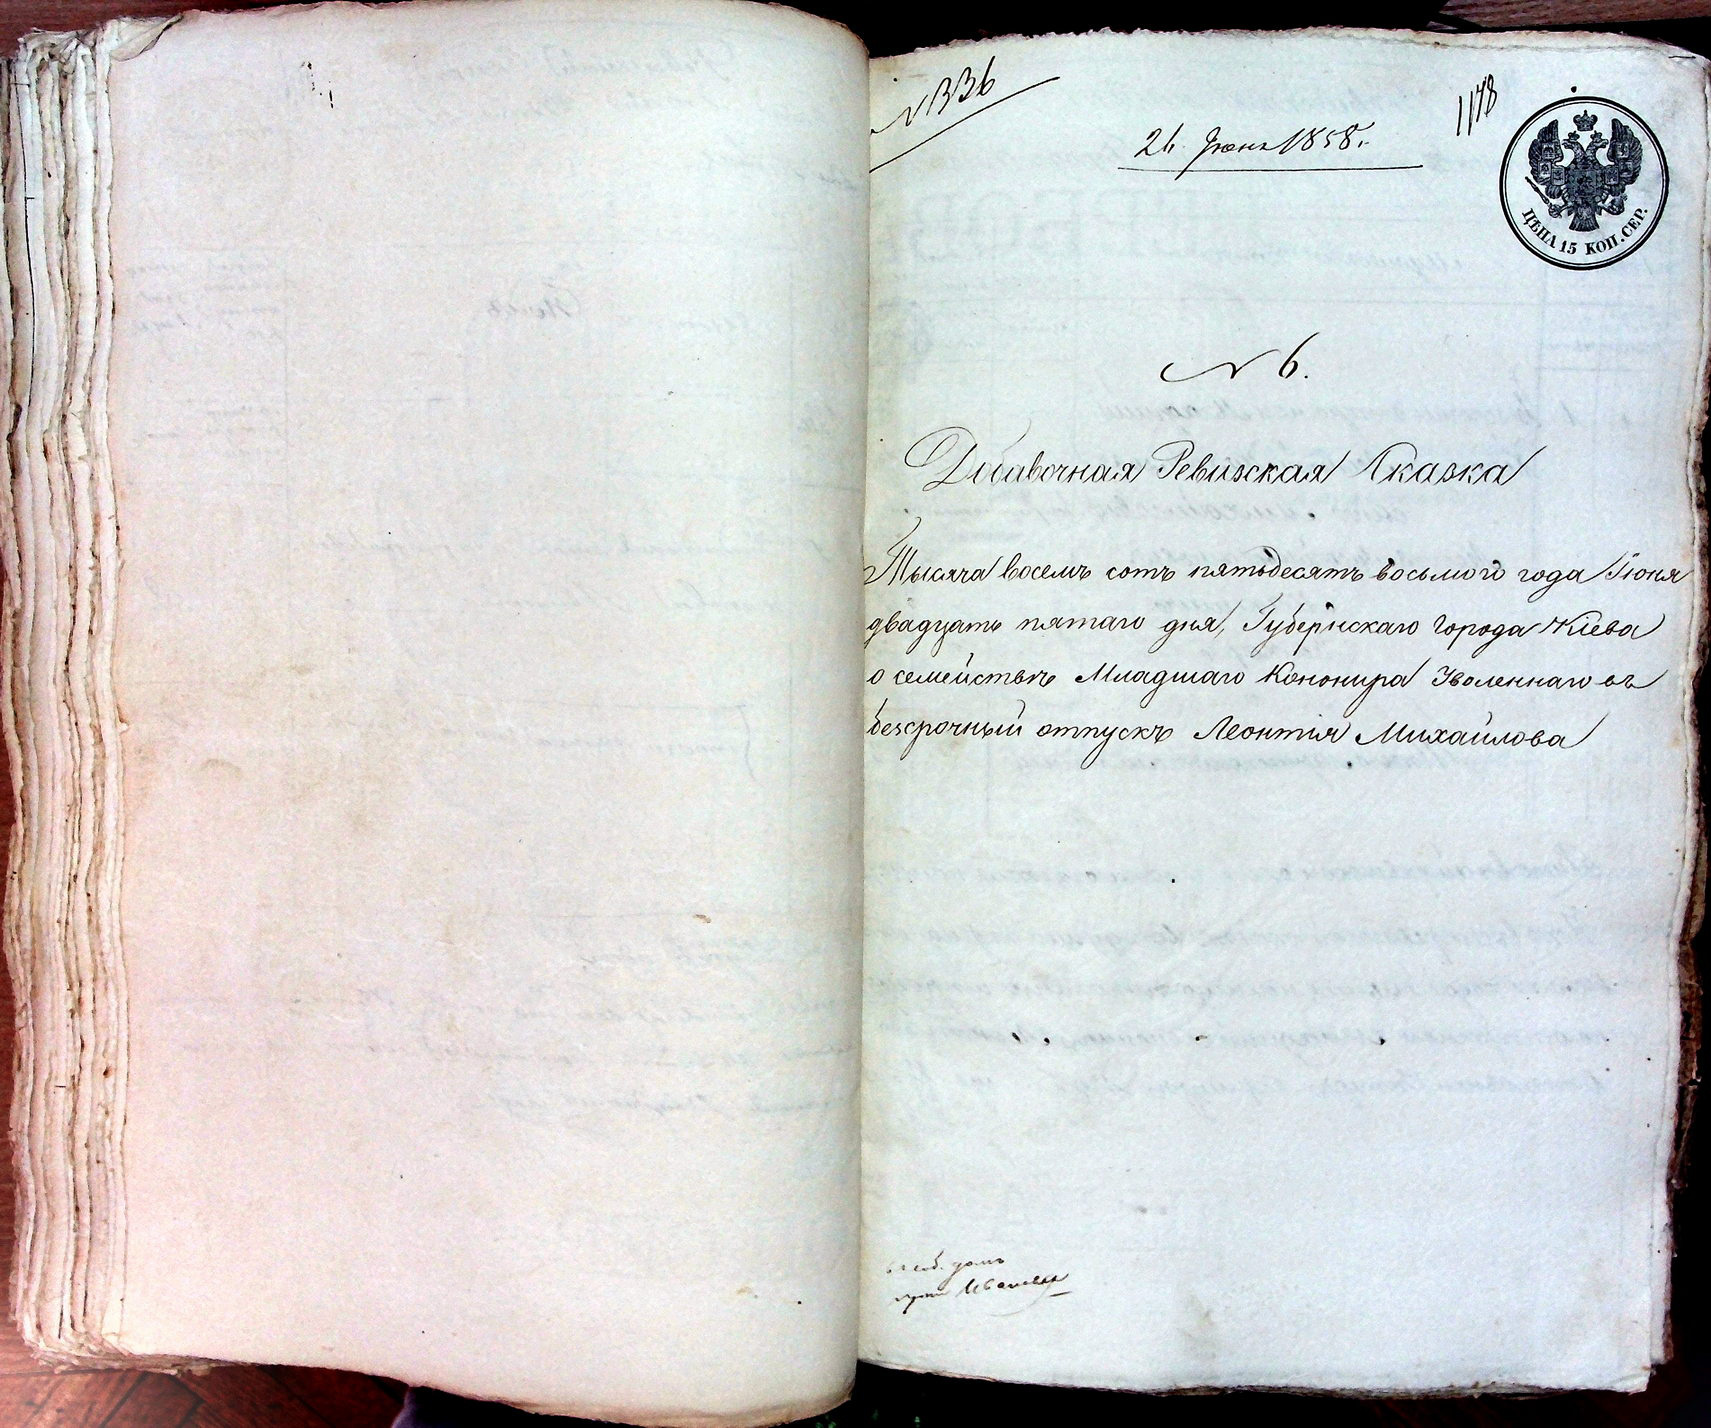 № 336
26 Июня 1858 г.
1178
ЦѢНА 15 КОП. СЕР.
№ 6.
Добавочная Ревизская Сказка
Тысяча восемь сотъ пятьдесятъ восьмого года Іюня
двадцать пятаго дня, Губернскаго Города Кіева
о семействѣ Младшаго Кононира Уволеннаго въ
безсрочный отпускъ Леонтія Михайлова
соб. домъ